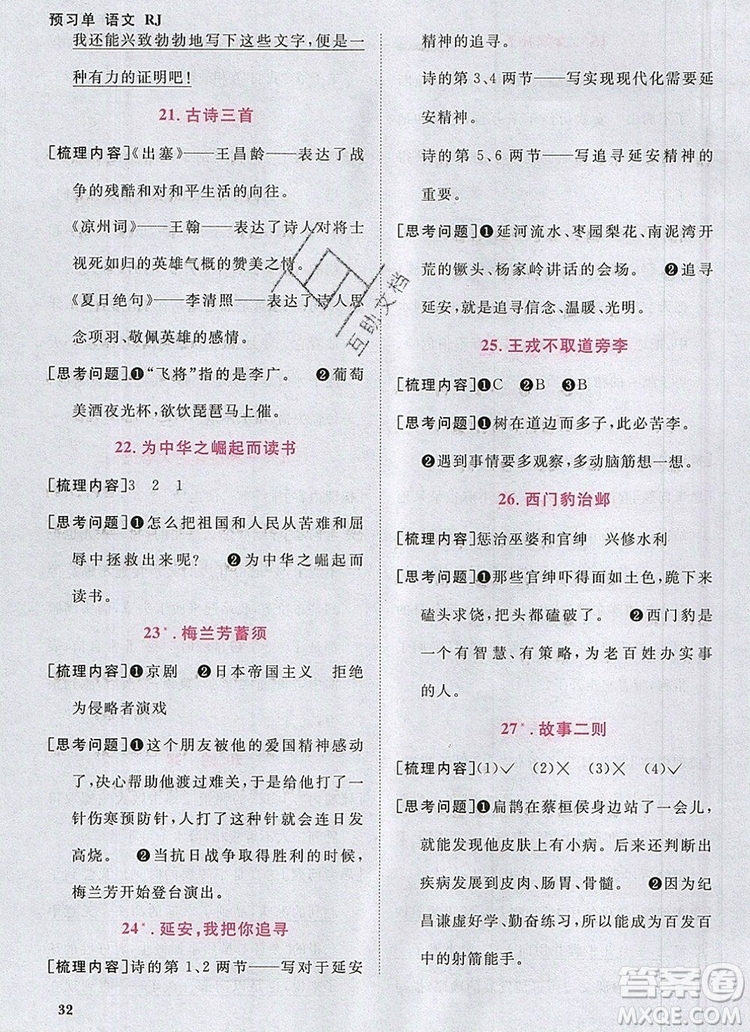 预习单 语文 RJ
我还能兴致勃勃地写下这些文字,便是一
种有力的证明吧!
21.古诗三首
[梳理内容]《出塞》——王昌龄——表达了战
争的残酷和对和平生活的向往。
《凉州词》——王翰——表达了诗人对将士
视死如归的英雄气概的赞美之情。
《夏日绝句》——李清照——表达了诗人思
念项羽、敬佩英雄的感情。
[思考问题]❶“飞将”指的是李广。 ❷葡萄
美酒夜光杯,欲饮琵琶马上催。
22.为中华之崛起而读书
[梳理内容]3 2 1
[思考问题]❶怎么把祖国和人民从苦难和屈
辱中拯救出来呢? ❷为中华之崛起而
读书。
23*.梅兰芳蓄须
[梳理内容]❶京剧 ❷日本帝国主义 拒绝
为侵略者演戏
[思考问题]❶这个朋友被他的爱国精神感动
了,决心帮助他渡过难关,于是给他打了一
针伤寒预防针,人打了这种针会连日发
高烧。 ❷当抗日战争取得胜利的时候,
梅兰芳开始登台演出。
24*.延安,我把你追寻
[梳理内容]诗的第1、2两节——写对于延安
32
精神的追寻。
诗的第3、4两节——写实现现代化需要延
安精神。
诗的第5、6两节——写追寻延安精神的
重要。
[思考问题]❶延河流水、枣园梨花、南泥湾开
荒的镢头、杨家岭讲话的会场。 ❷追寻
延安,就是追寻信念、温暖、光明。
25.王戎不取道旁李
[梳理内容]❶C ❷B ❸B
[思考问题]❶树在道边而多子,此必苦李。
❷遇到事情要多观察,多动脑筋想一想。
26.西门豹治邺
[梳理内容]惩治巫婆和官绅 兴修水利
[思考问题]❶那些官绅吓得面如土色,跪下来
磕头求饶,把头都磕破了。 ❷西门豹是
一个有智慧、有策略,为老百姓办实事
的人。
27*.故事二则
[梳理内容](1)✓ (2)× (3)✓ (4)×
[思考问题]❶扁鹊在蔡桓侯身边站了一会儿,
就能发现他皮肤上有小病。后来又发现
疾病发展到皮肉、肠胃、骨髓。 ❷因为纪
昌谦虚好学、勤奋练习,所以成为百发百中
的射箭能手。
互助文档
答案圈
MXQE.COM